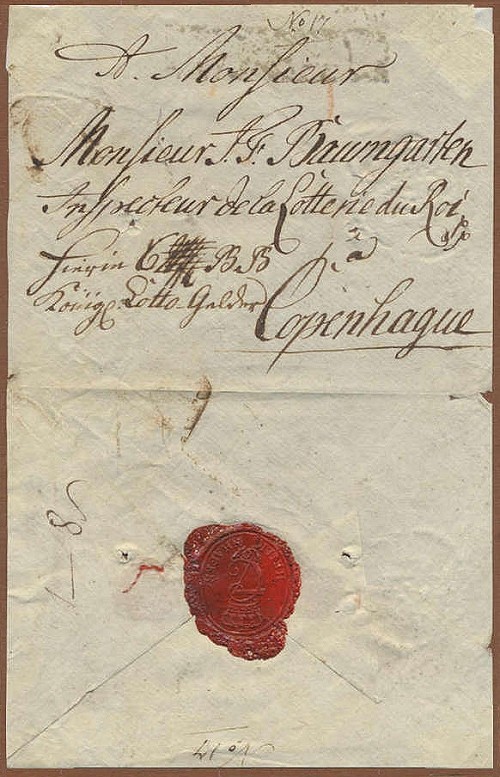 No 17
A. Monsieur
Monsieur J. F. Baumgarten
Inspecteur de la Lotterie du Roi
hierin 6 B.B
Königl. Lotto-Gelder
Copenhague
8